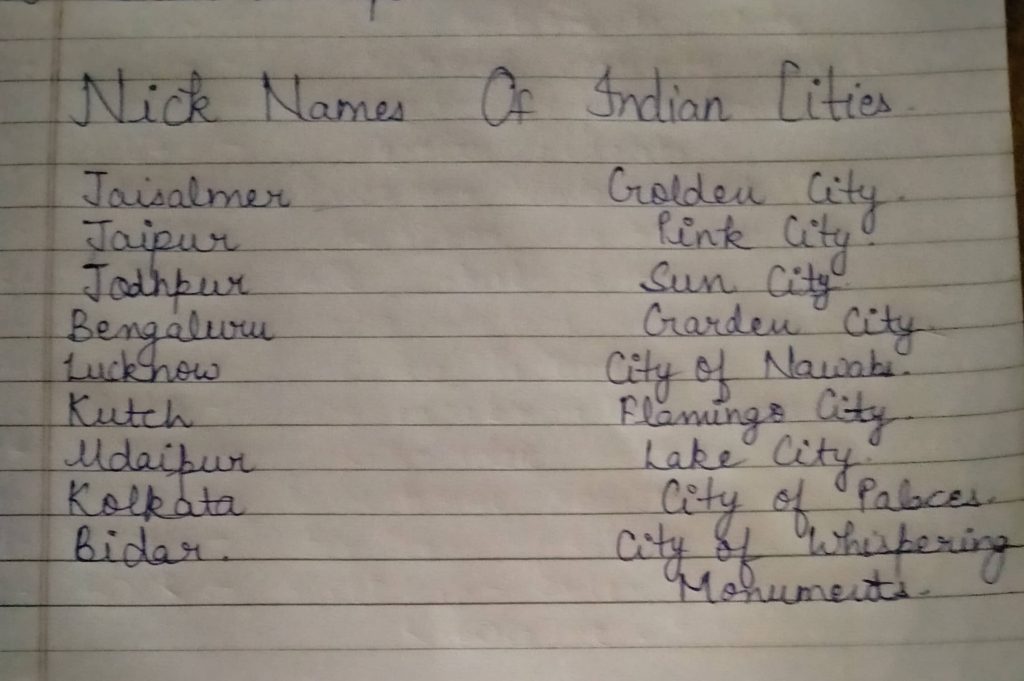 Nick Names Of Indian Cities.
Jaisalmer Golden City.
Jaipur Pink City.
Jodhpur Sun City.
Bengaluru Garden City.
Lucknow City of Nawabs.
Kutch Flamingo City.
Udaipur Lake City.
Kolkata City of Palaces.
Bidar. City of Whispering
Monuments.